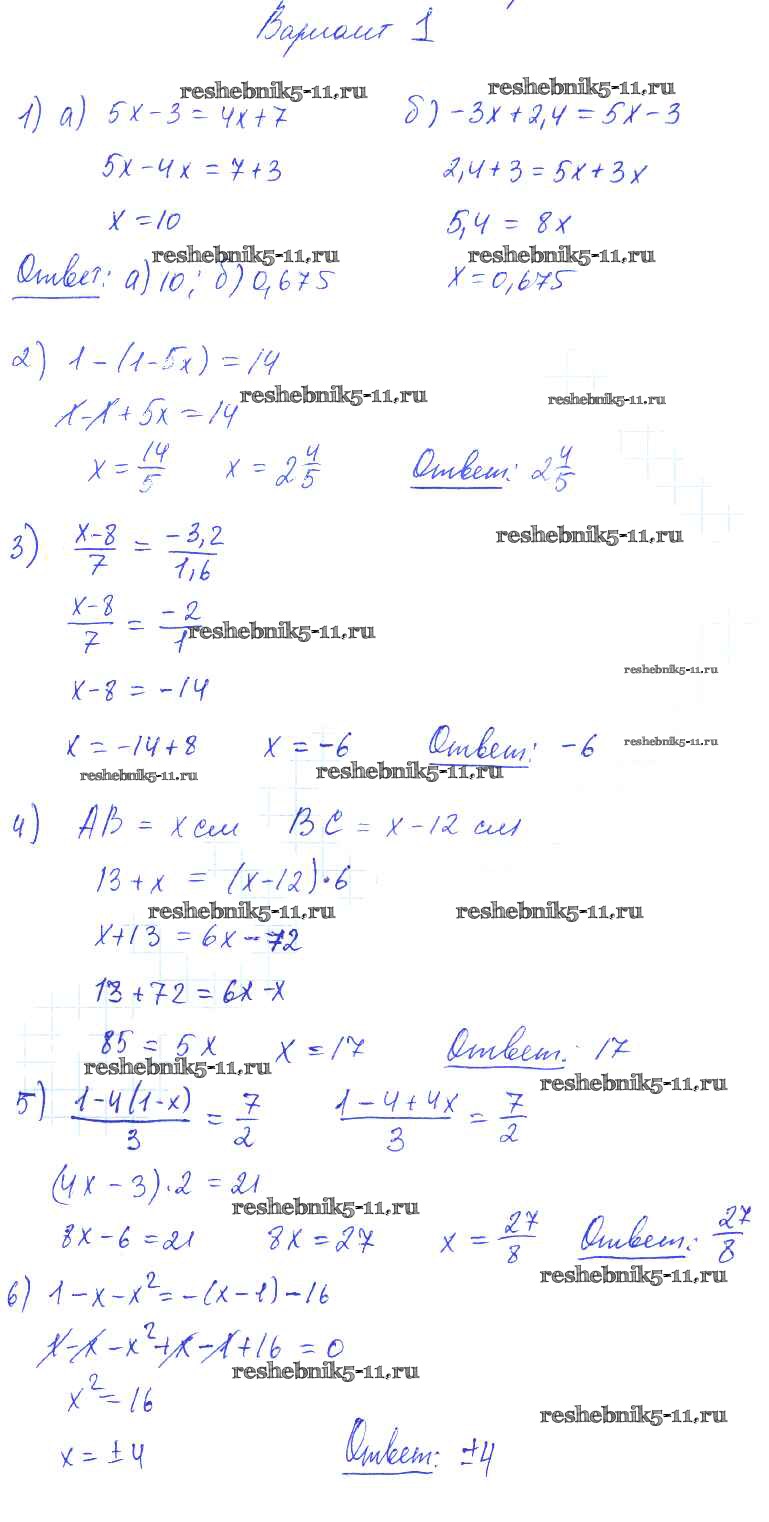 Вариант 1
reshebnik5-11.ru reshebnik5-11.ru
1) а) 5x-3=4x+7 б) -3x+2,4=5x-3
5x-4x=7+3 2,4+3=5x+3x
x=10 5,4=8x
reshebnik5-11.ru reshebnik5-11.ru
Ответ: а) 10; б) 0,675 x=0,675
2) 1-(1-5x)=14
reshebnik5-11.ru reshebnik5-11.ru
1-1+5x=14
x=14/5 x=2 4/5 Ответ: 2 4/5
reshebnik5-11.ru
3) (x-8)/7 = -3,2/1,6
(x-8)/7 = -2/1
reshebnik5-11.ru
reshebnik5-11.ru
x-8=-14
x=-14+8 x=-6 Ответ: -6
reshebnik5-11.ru
reshebnik5-11.ru reshebnik5-11.ru
4) AB = x см BC = x-12 см
13+x = (x-12)·6
reshebnik5-11.ru reshebnik5-11.ru
x+13=6x-72
13+72=6x-x
85=5x x=17 Ответ: 17
reshebnik5-11.ru reshebnik5-11.ru
5) (1-4(1-x))/3 = 7/2 (1-4+4x)/3 = 7/2
(4x-3)·2=21
reshebnik5-11.ru
8x-6=21 8x=27 x=27/8 Ответ: 27/8
reshebnik5-11.ru
6) 1-x-x²=-(x-1)-16
1-x-x²+x-1+16=0
reshebnik5-11.ru
x²=16
reshebnik5-11.ru
x=±4 Ответ: ±4